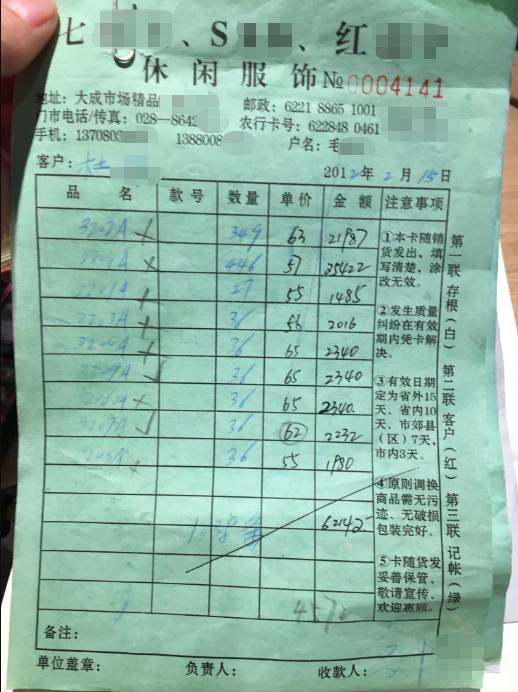 七 、S 、红
休闲服饰 № 0004141
地址：大成市场精品
邮政：6221 8865 1001
门市电话/传真：028—864
农行卡号：622848 0461
手机：13708 138800
户名：毛
客户：
2012年2月15日
品名 款号 数量 单价 金额 注意事项
3202A 349 63 21987
446 57 25422
27 55 1485
36 56 2016
36 65 2340
36 65 2340
36 65 2340
36 62 2232
36 55 1980
62142
4572
①本卡随销货发出，填写清楚，涂改无效。
②发生质量纠纷在有效期内凭卡解决。
③有效日期定为省外15天、省内10天、市郊县（区）7天，市内3天。
④原则调换商品需无污迹、无破损包装完好。
⑤卡随货发妥善保管、敬请宣传、欢迎惠顾。
第一联 存根（白） 第二联 客户（红） 第三联 记帐（绿）
备注：
单位盖章： 负责人： 收款人：